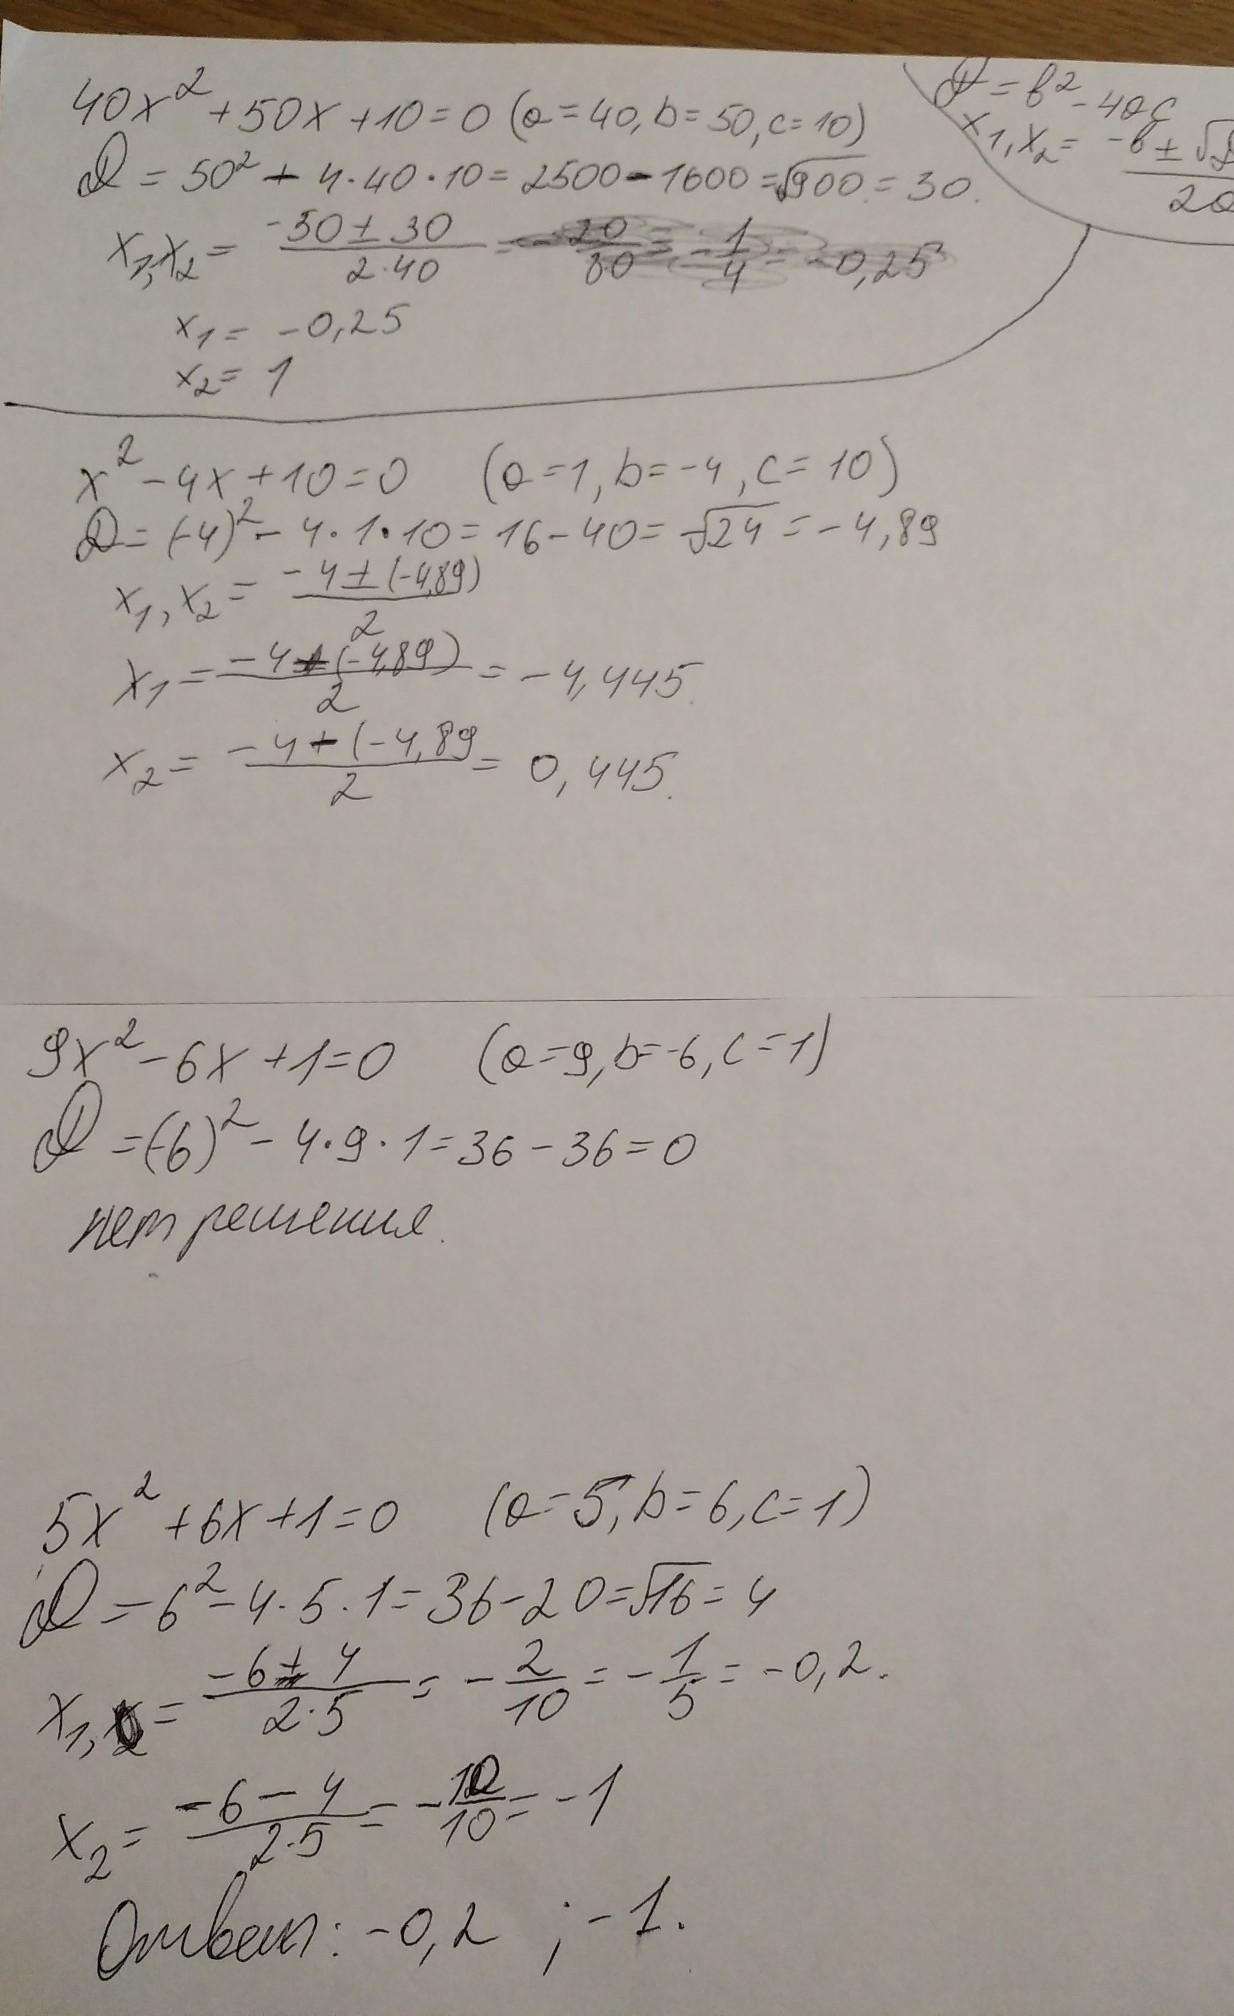 40x² + 50x + 10 = 0 (a = 40, b = 50, c = 10)
D = b² - 4ac
x₁, x₂ = -b ± √
2a
D = 50² - 4·40·10 = 2500 - 1600 = √900 = 30.
x₁, x₂ = -50 ± 30 / 2·40 = -20/80 = -1/4 = -0,25
x₁ = -0,25
x₂ = 1
x² - 4x + 10 = 0 (a = 1, b = -4, c = 10)
D = (-4)² - 4·1·10 = 16 - 40 = √24 = -4,89
x₁, x₂ = -4 ± (-4,89) / 2
x₁ = -4 + (-4,89) / 2 = -4,445.
x₂ = -4 - (-4,89 / 2 = 0,445.
9x² - 6x + 1 = 0 (a = 9, b = -6, c = 1)
D = (-6)² - 4·9·1 = 36 - 36 = 0
нет решения.
5x² + 6x + 1 = 0 (a = 5, b = 6, c = 1)
D = 6² - 4·5·1 = 36 - 20 = √16 = 4
x₁, = -6 + 4 / 2·5 = -2/10 = -1/5 = -0,2.
x₂ = -6 - 4 / 2·5 = -10/10 = -1
Ответ: -0,2 ; -1.